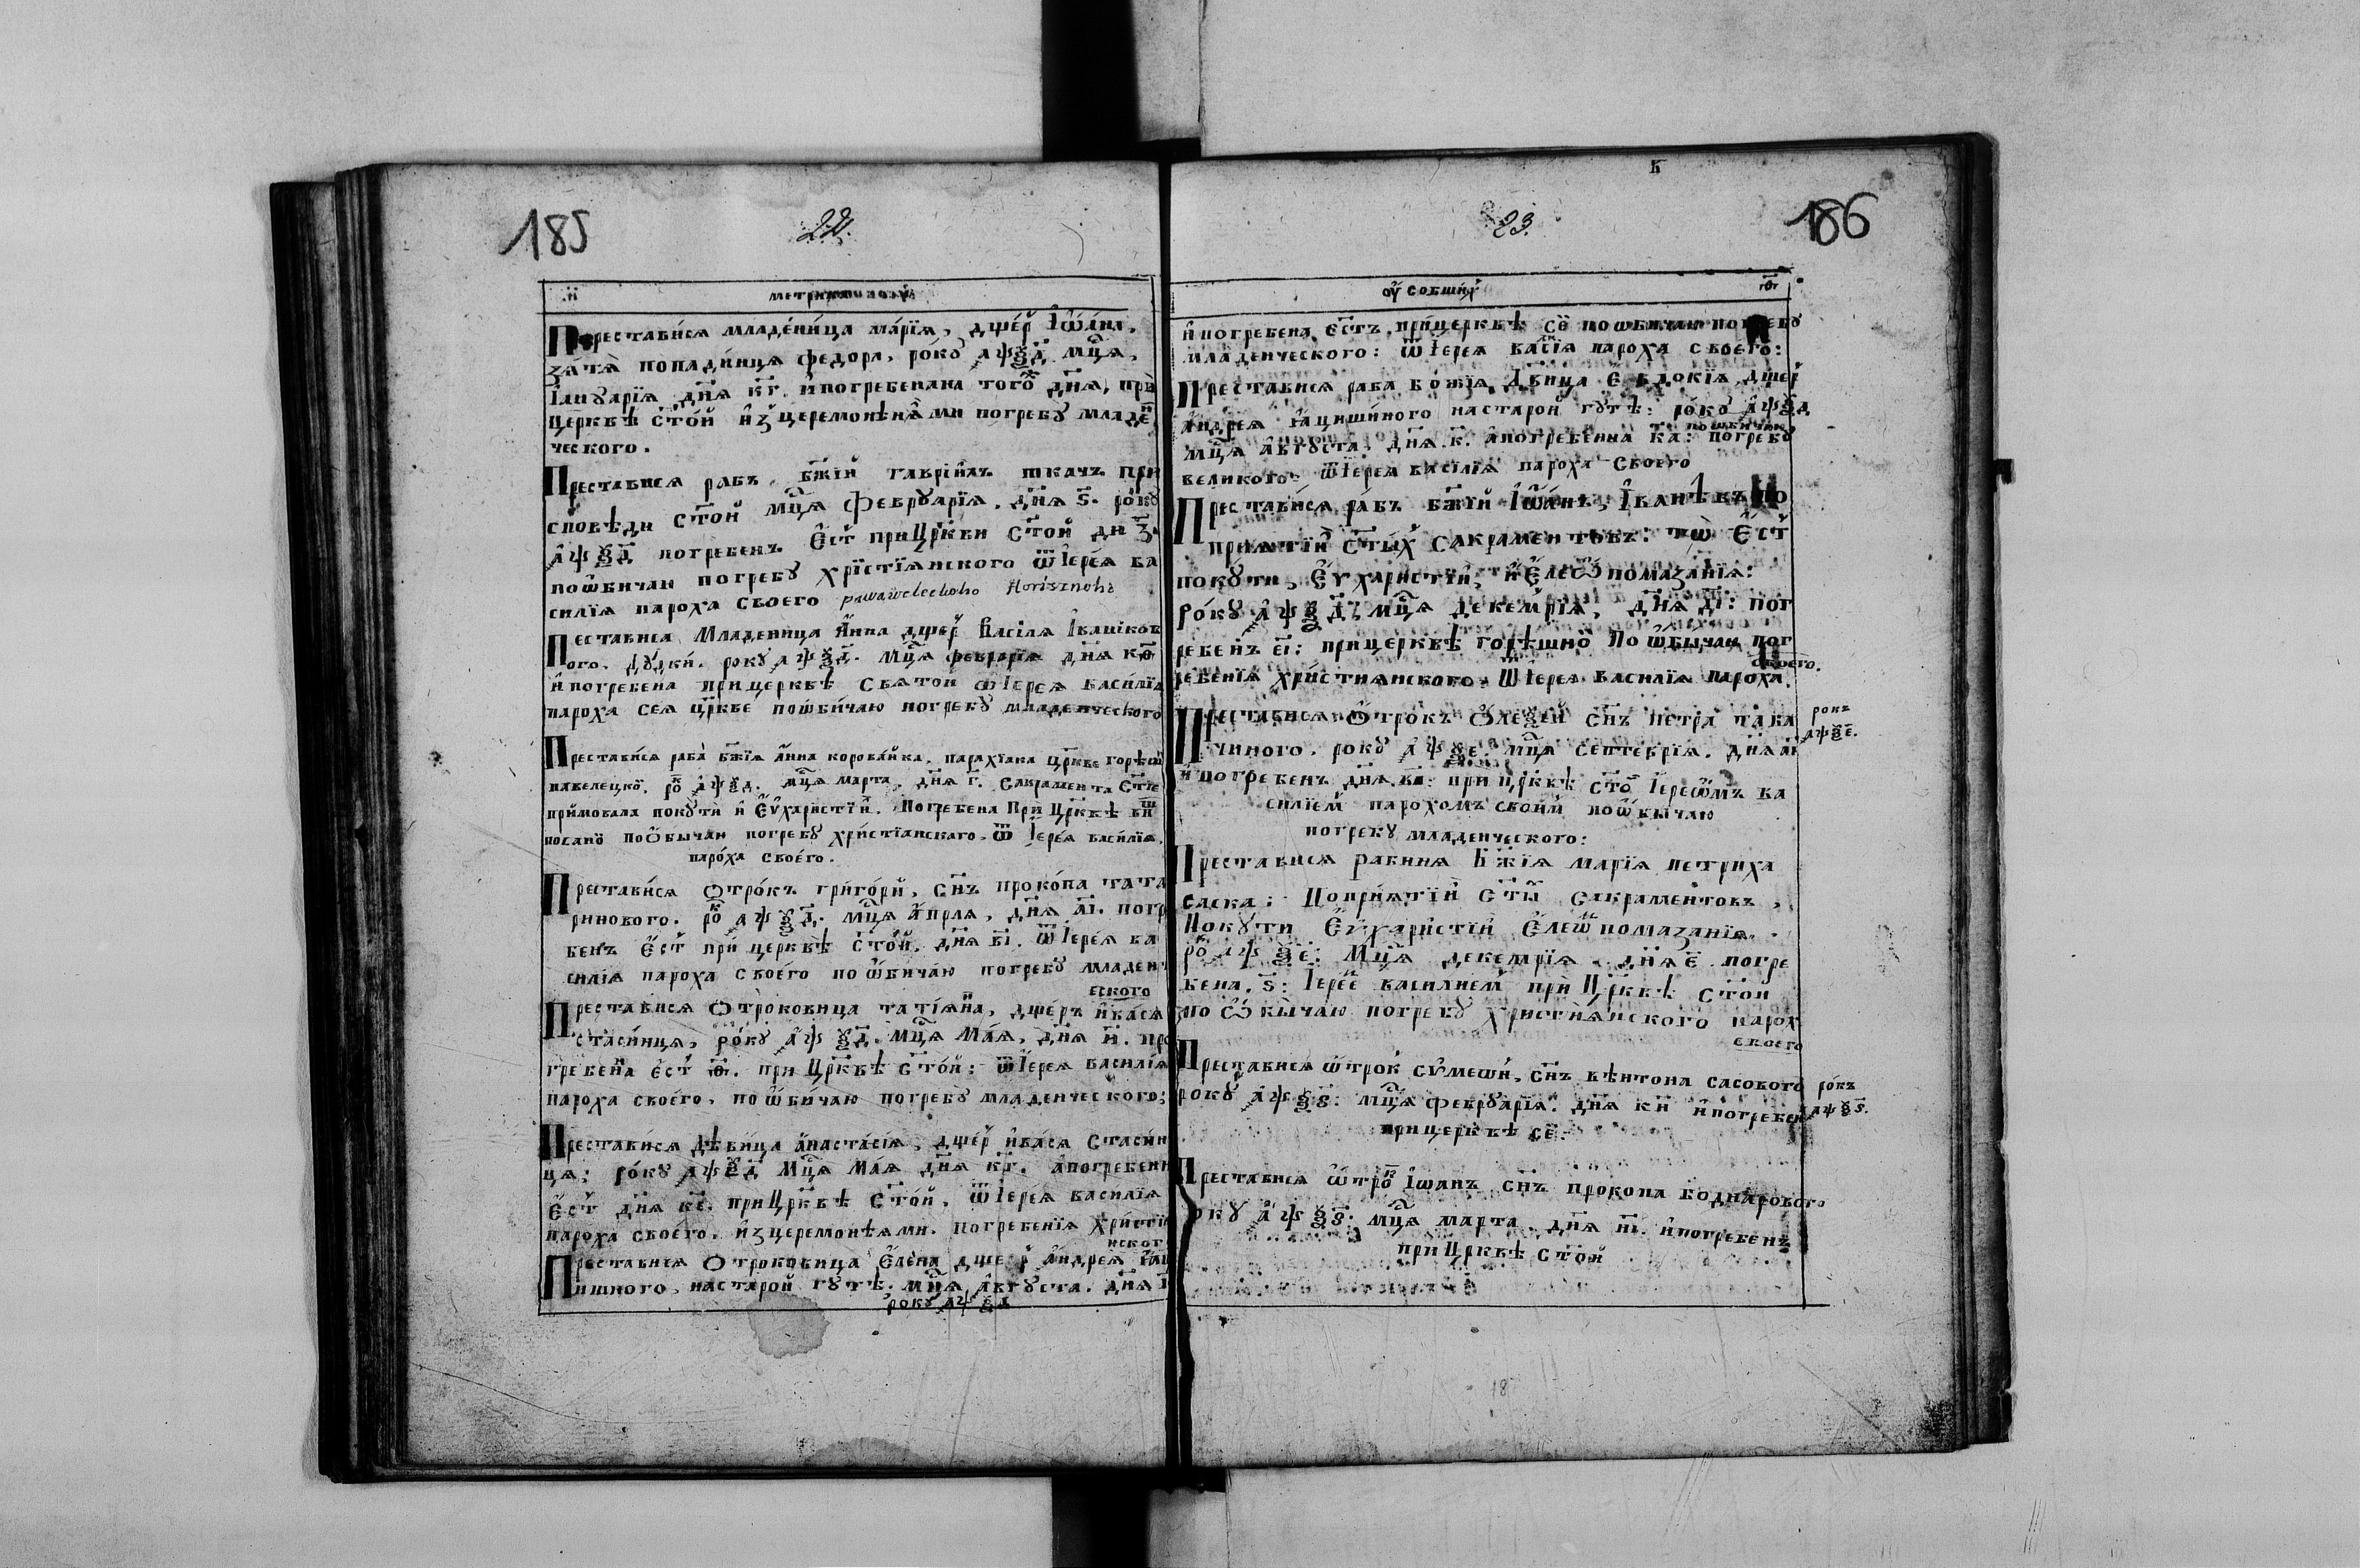 185
22.
.н҃
Преставися младеница марїя, дщер Іѡана,
зятя попадинця федора, року ҂аѱѯд мц҃я,
Іануарїя дн҃я кг. и погребенана того дн҃я, при
церквѣ ст҃ой из церемонѣями погребу младен
ческого.
Преставися рабъ бж҃їй гаврїилъ ткачъ при
сповѣди ст҃ой мц҃я февруарїя. дн҃я ѕ҃. року
҂аѱѯд погребенъ ест при Цр҃кви ст҃ой дн з.
поѡбичаю погребу хрїстїянского ѿ Іерея ва
силїя пароха своего pawaweleckoho Horisznoho
Преставися Младеница Анна дщер Василя Іванїков
ого. дудки. року ҂аѱѯд. мц҃я февраїя дн҃я кѳ
и погребена при церквѣ святой ѿ Іерея василїя
пароха сея цр҃кве поѡбичаю погребу младенческого
Преставися раба бж҃їя Анна корованка. парахїана цр҃кве горѣшй
павелецкѡ. ро ҂аѱѯд. мц҃я марта, дн҃я г. Сакрамента ст҃їе
примовала покути и Еѵхаристїи. Погребена При Цр҃квѣ вш
писанѡ поѡбычаю погребу хрістїанскаго ѿ Іерея василїя.
пароха своего.
Преставися отрокъ григорй, сн҃ъ прокопа тата
ринового. рок ҂аѱѯд. мц҃я апрля, дн҃я аі. погр
бенъ ест при церквѣ ст҃ой. дн҃я ві. ѿ Іерея ва
силїя пароха своего по ѡбичаю погребу младенч
еского
Преставися отроковица татїяна, дщеръ ивася
стасинця, року ҂аѱѯд. мц҃я Мая, дн҃я н҃. по
гребенна ест ѳ. при Цр҃квѣ ст҃ой: ѿ Іерея василїя
пароха своего. по ѡбичаю погребу младенческого:
Преставися дѣвица анастасїя, дщер ивася Стасин
ця: року ҂аѱѯд мц҃я Мая дн҃я кг. а погребенн
Ест дн҃я ке. при Цр҃квѣ ст҃ой. ѿ Іерея василїя
пароха своего. из церемонѣями. погребенїя хрістїя
нског
Преставися отроковица Елена дщер андрея
ишного. на старой гутѣ. мц҃я августа. дн҃я
року ҂аѱѯд
Б
23.
186
ѳ҃
и погребена Естъ. при церквѣ се поѡбичаю погребу
младенческого: ѿ Іерея васїя пароха своего:
Преставися раба божїя двица Евдокїя дщер
андрея яцишиного на старой гутѣ: року ҂аѱѯд
поѡбичаю
мц҃я августа, дн҃я к. а погребенна ка: погребу
великого: ѿ Іерея василїя пароха Своего
Преставися рабъ бж҃їй Іѡанъ, Іванѣвъ по
приятїи ст҃ых сакраментовъ: тѡ ест
покути, Еѵхаристїи, и Елеѡпомазанїя:
року ҂аѱѯд, мц҃я декемрїя, дн҃я ді: пог
ребенъ еі: при церквѣ горѣшнѡ По ѡбычаю пог
своего.
ребенїя хрістиянского ѿ Іерея Василїя пароха.
рокъ
҂аѱѯе.
Преставися Отрокъ Ѡлеѯей сн҃ъ петра така
чиного. року ҂аѱѯе. мц҃я септеврїя. дн҃я аі
и погребенъ дн҃я ві: при цр҃квѣ ст҃о Іереѡмъ ва
силїем парохомъ своим поѡбычаю
погребу младенческого:
Преставися рабиня Бж҃їя марїя петриха
саска: По приятїи ст҃ы сакраментовъ,
Покути Еѵхаристїи Елеѡпомазанїя.
рок ҂аѱѯе: Мц҃я декемрїя дн҃я е҃ погре
бена. ѕ҃: Іерее василием при Цр҃квѣ ст҃ой
по ѡбычаю погребу християнского парох
своего
Преставися ѿтрок сумеѡн, сн҃ъ вѣнтона сасового
рокъ
҂аѱѯѕ.
року ҂аѱѯѕ: мц҃я февруарїя. дн҃я ки и погребен
при церквѣ се:
Преставися ѿтрок Іѡанъ сн҃ъ прокопа боднарового
року ҂аѱѯѕ: мц҃я марта. дн҃я ні. и погребенъ
при Цр҃квѣ ст҃ой